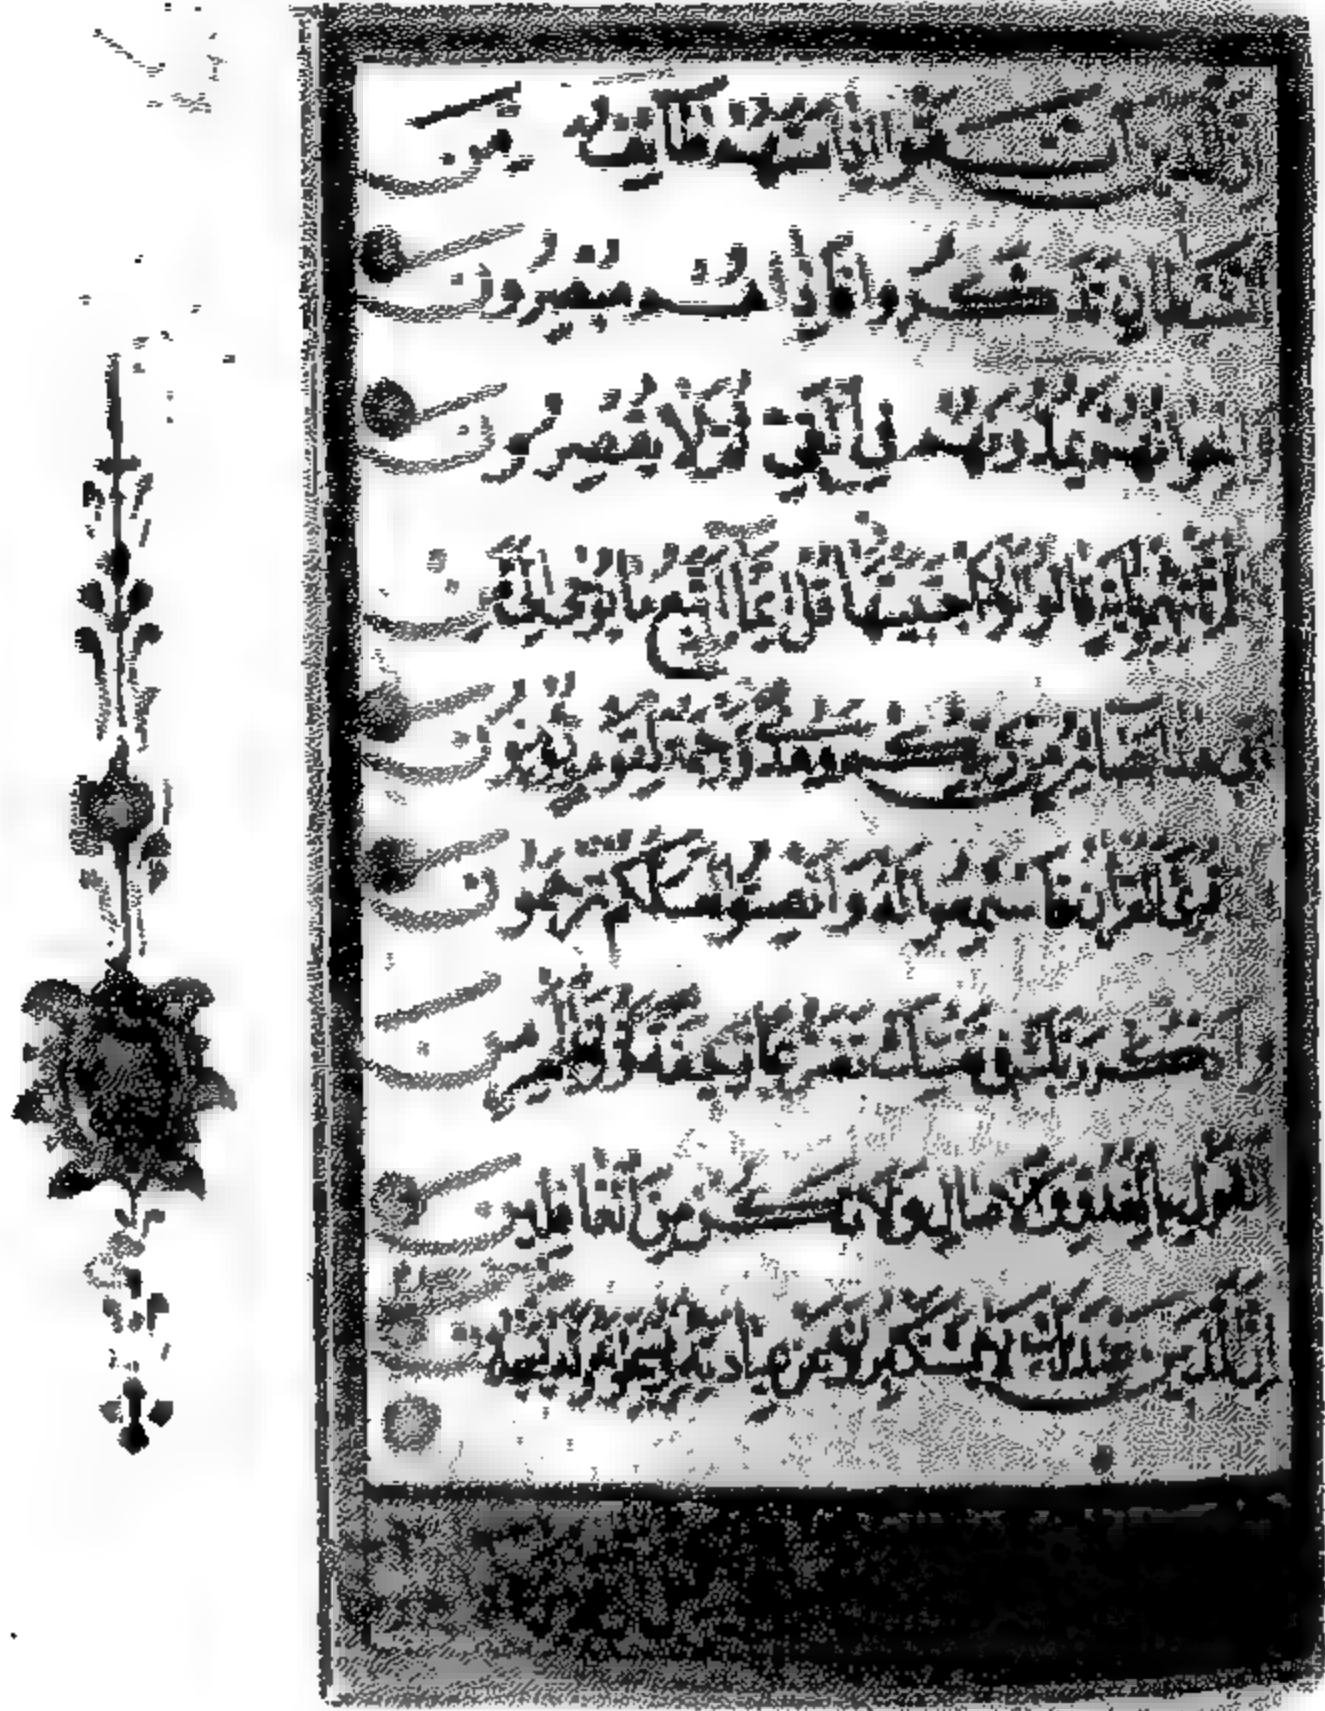 إن الذين اتقوا إذا مسهم طائف من
الشيطان تذكروا فإذا هم مبصرون
وإخوانهم يمدونهم في الغي ثم لا يقصرون
لم تأتهم بآية قالوا لولا اجتبيتها قل إنما أتبع ما يوحى إلي من
ربي هذا بصائر من ربكم وهدى ورحمة لقوم يؤمنون
قرئ القرآن فاستمعوا له وأنصتوا لعلكم ترحمون
واذكر ربك في نفسك تضرعا وخيفة ودون الجهر من
القول بالغدو والآصال ولا تكن من الغافلين
إن الذين عند ربك لا يستكبرون عن عبادته ويسبحونه وله يسجدون